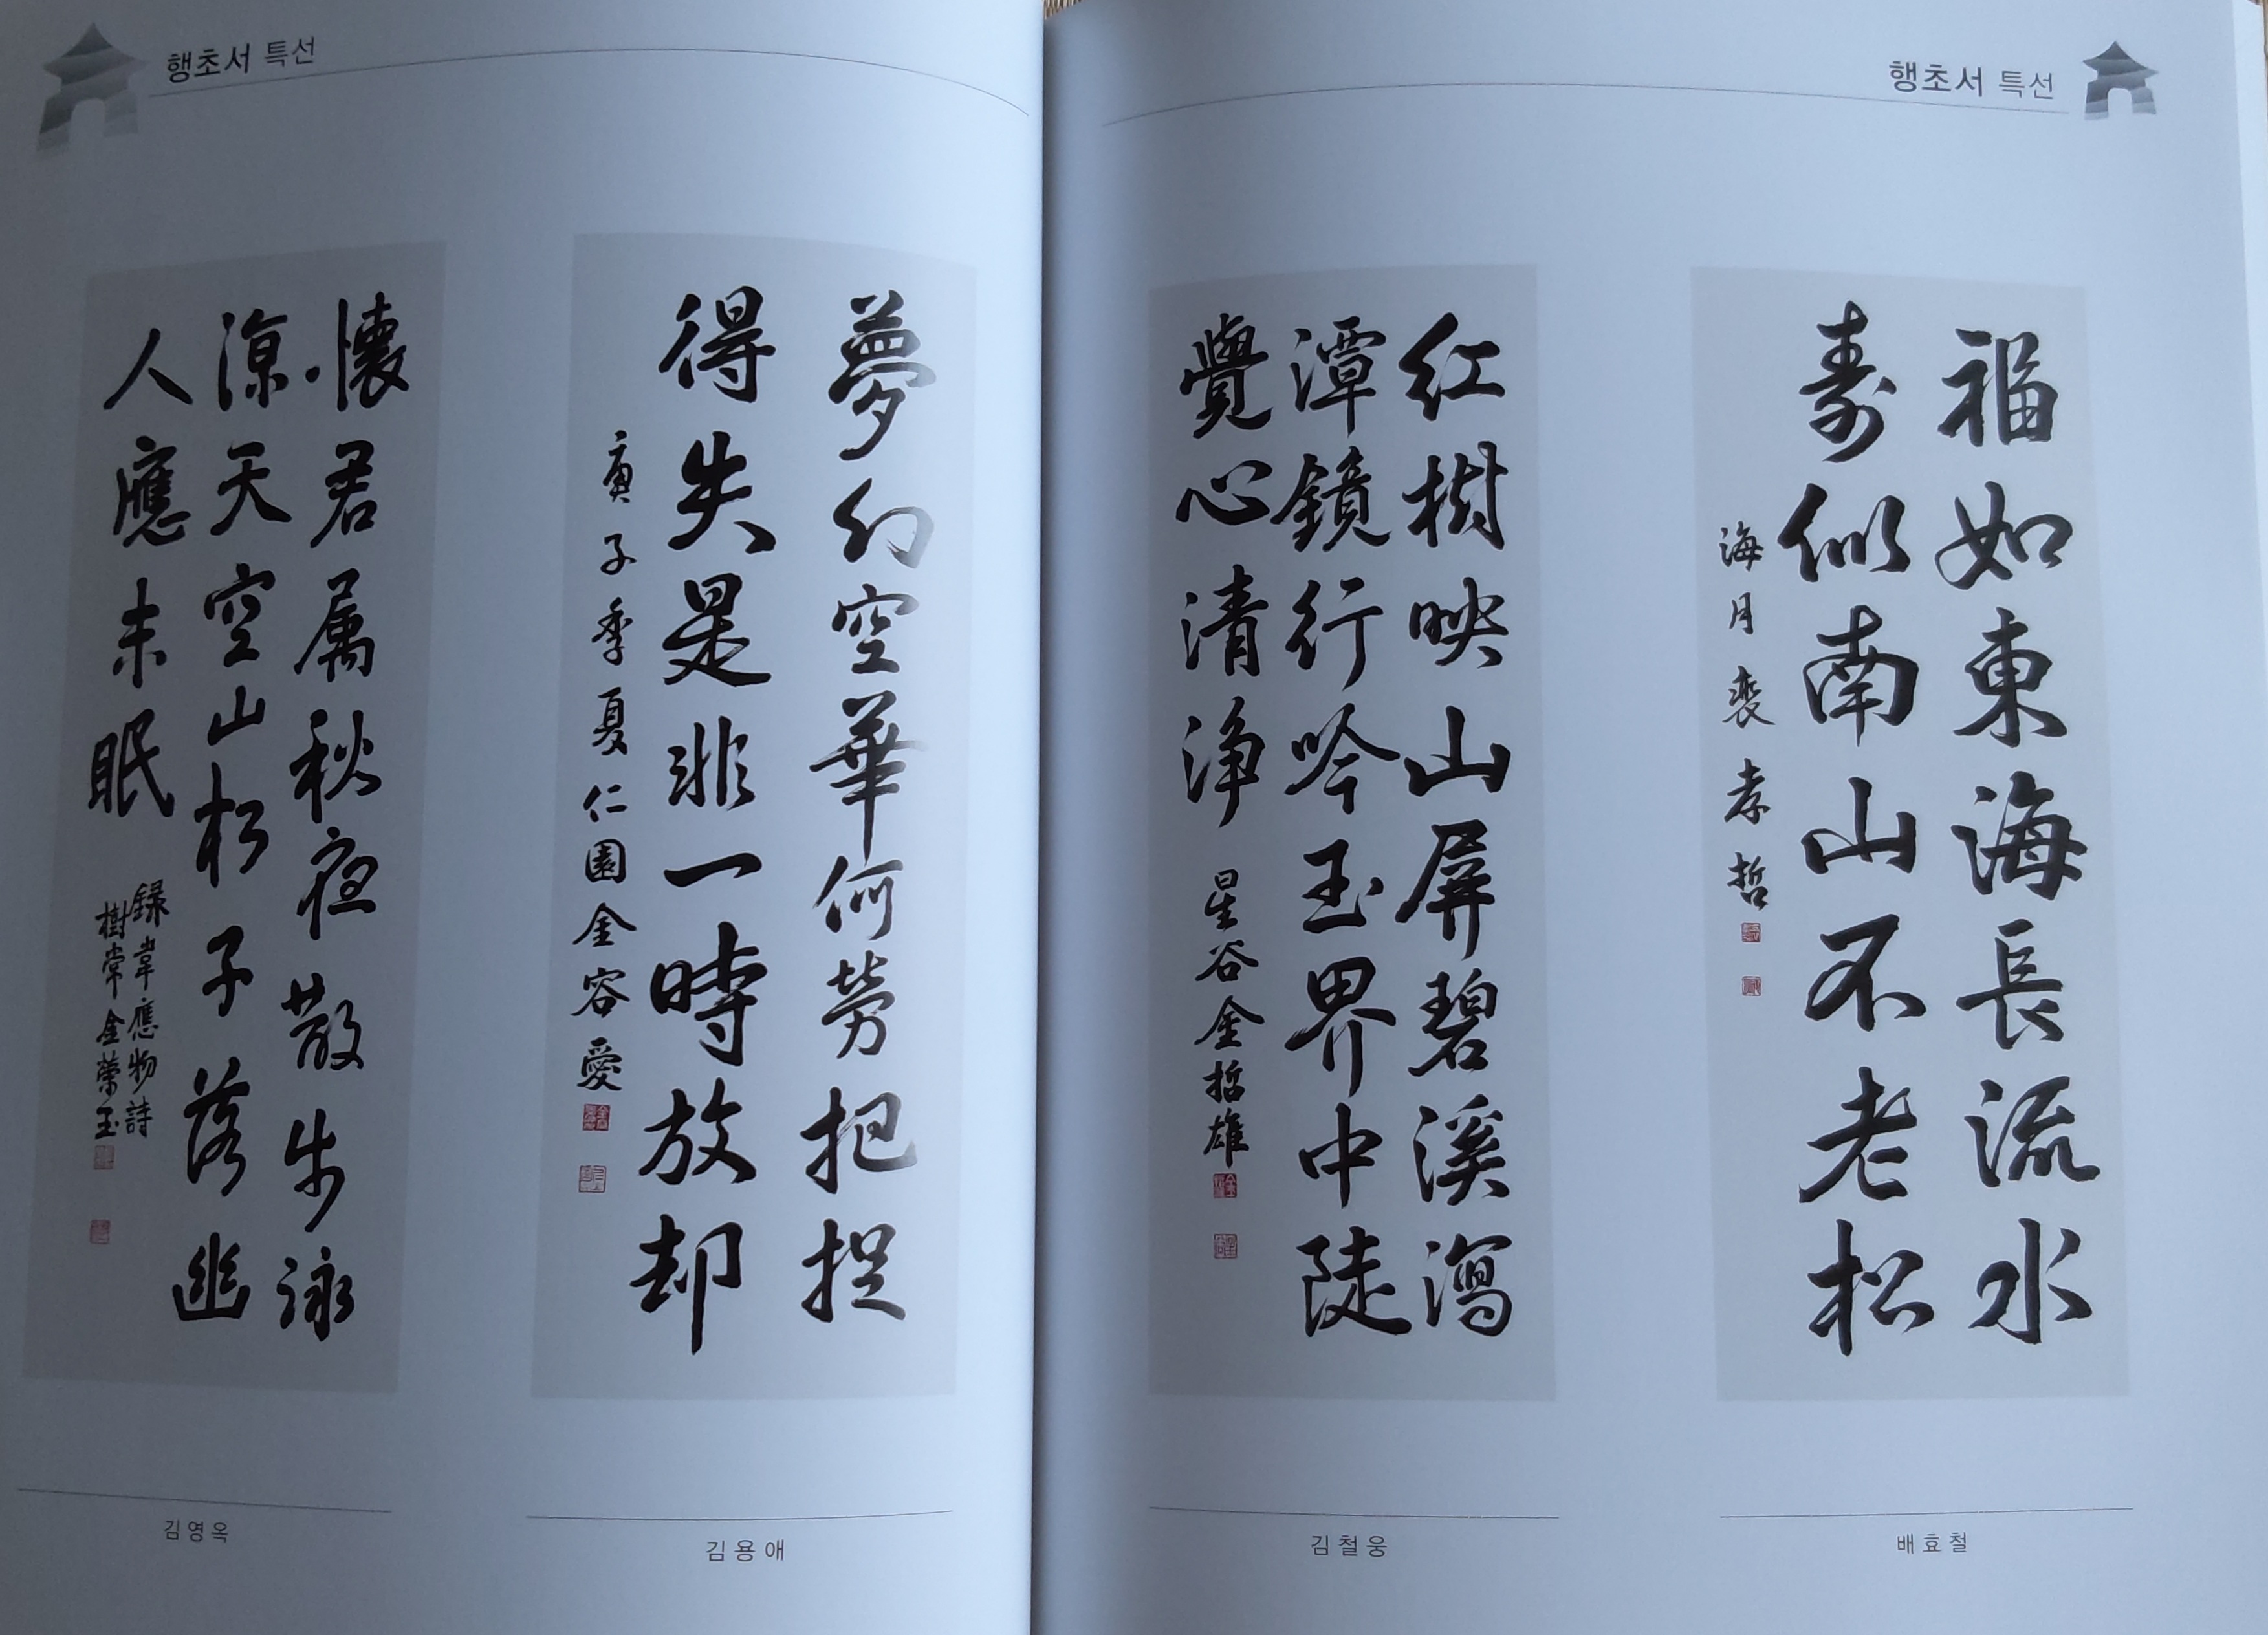 행초서 특선
懷君属秋夜散步泳
涼天空山松子落幽
人應未眠
録韋應物詩
樹常金榮玉
김영옥
夢幻空華何勞把捉
得失是非一時放却
庚子季夏仁園金容愛
김용애
행초서 특선
紅樹映山屏碧溪瀉
潭鏡行吟玉界中陡
覺心清淨
星谷金哲雄
김철웅
福如東海長流水
壽似南山不老松
海月裵孝哲
배효철